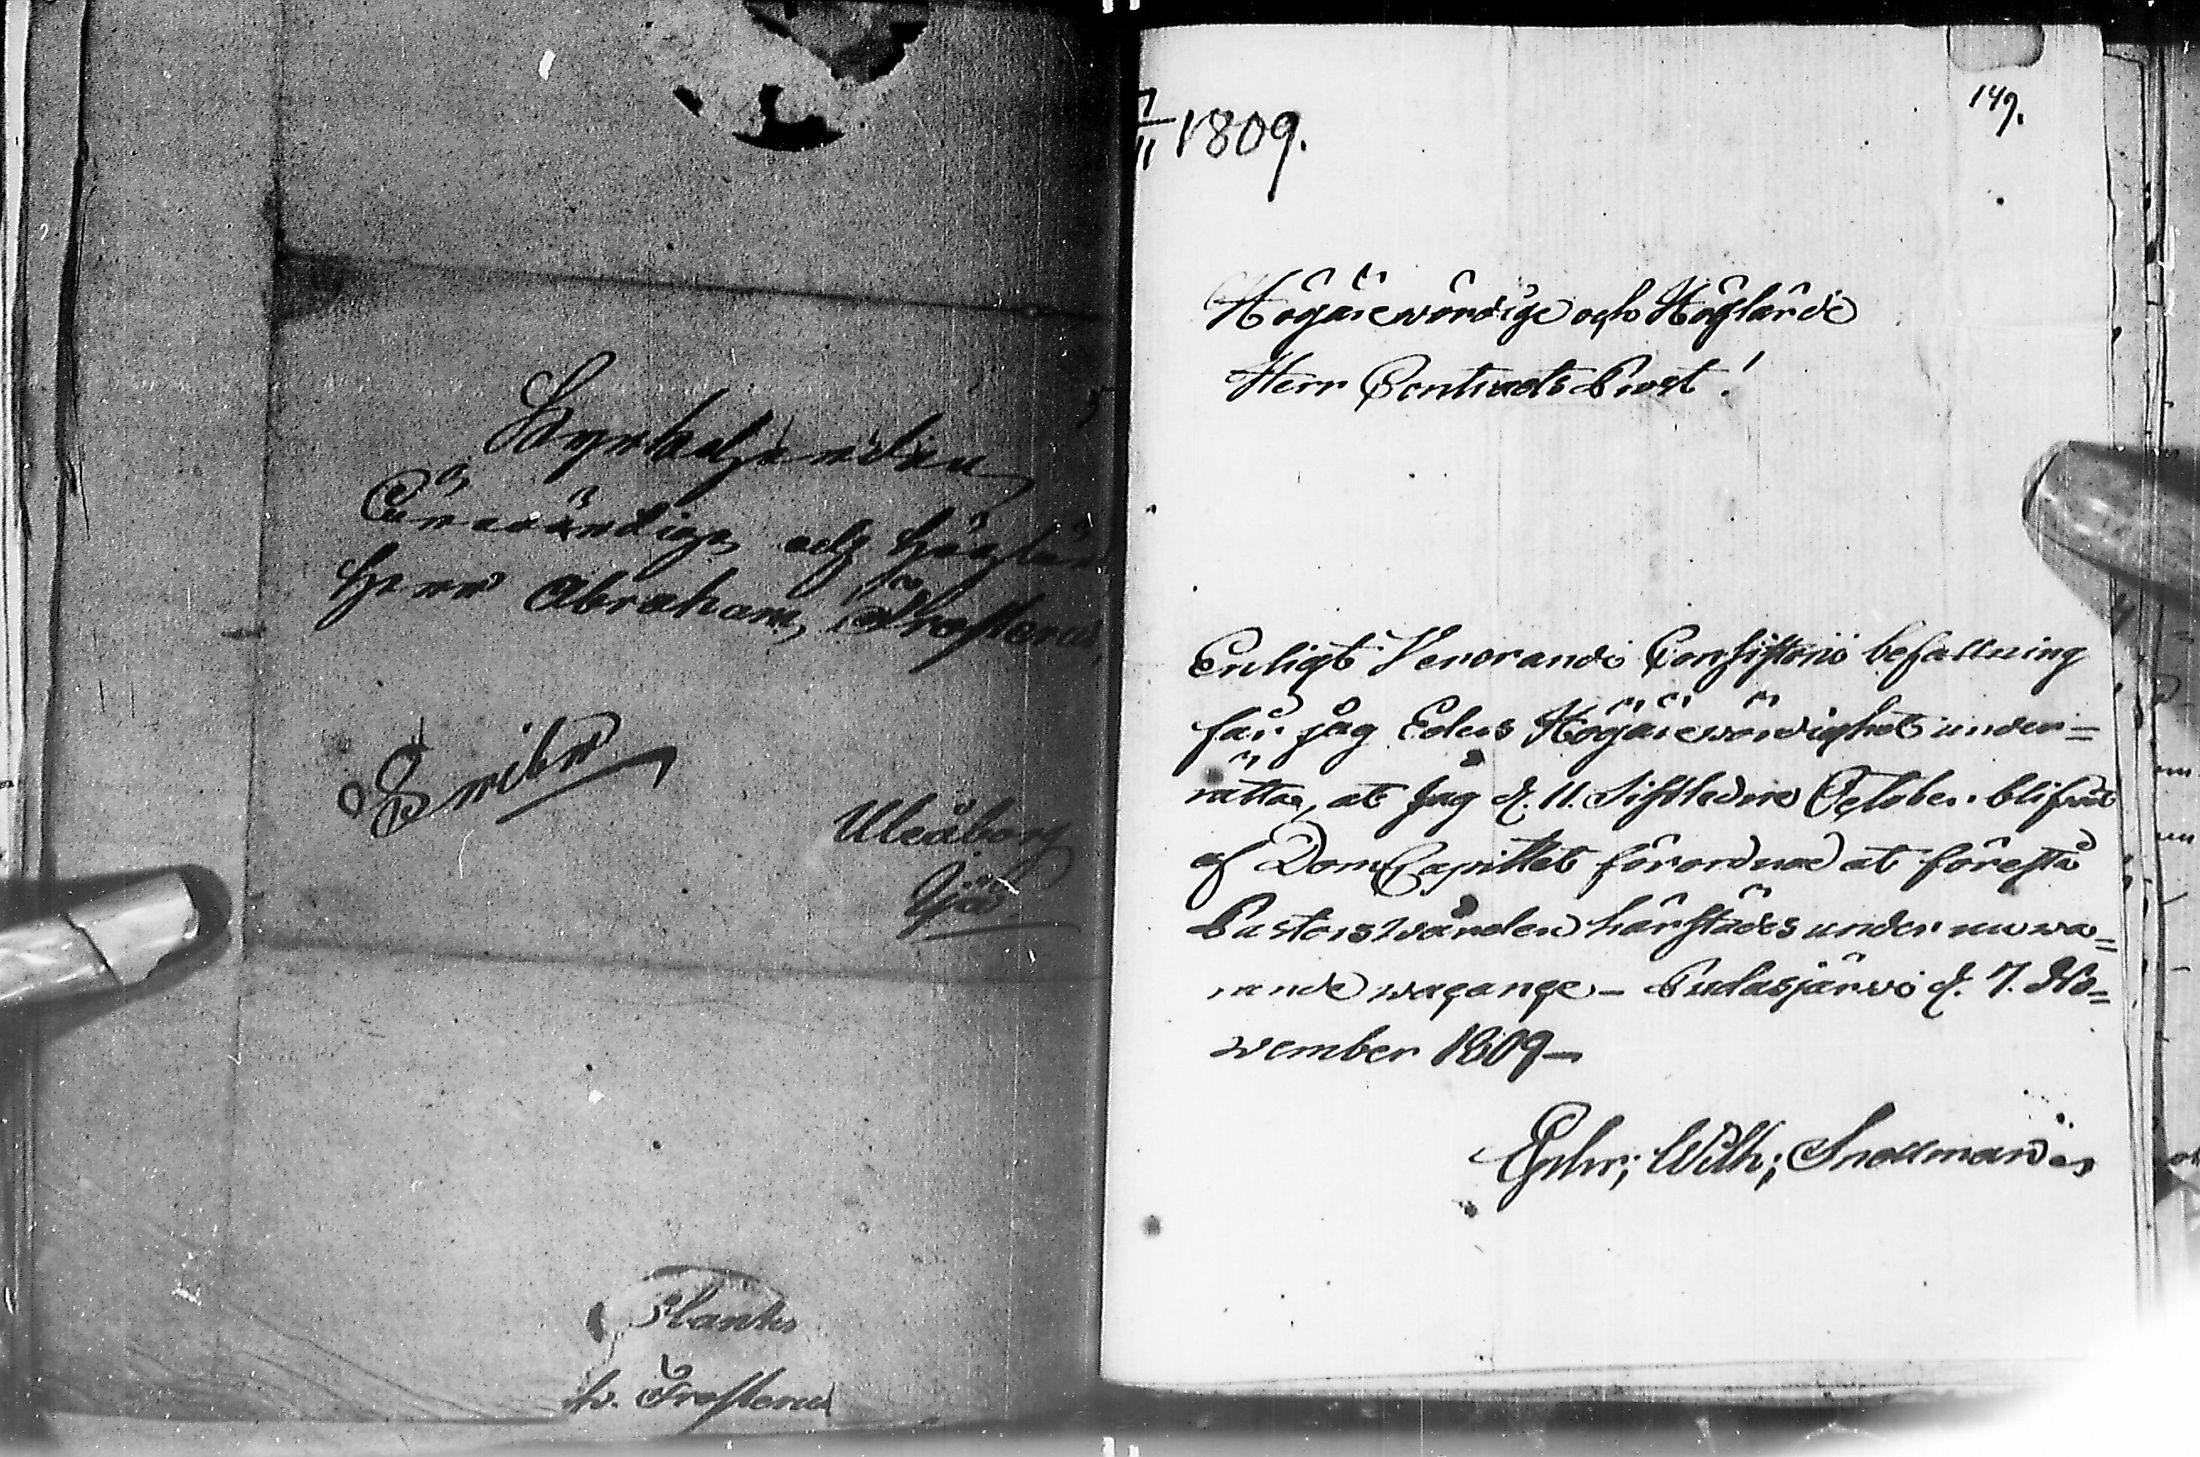 Kyrkoherden
Ärewördige och Höglärde
Herr Abraham Frosterus
Uleåborg
h. Frosterus
7/11 1809.
149.
Högärewördige och Höglärde
Herr Contracts Prost!
Enligt Venerandi Consistorii befallning
får jag Eders Högärewördighet under=
rätta, at jag d. 11. Sistledne October blifvit
af DomCapitlet förordnad at förestå
Pastorswården härstädes under nuwa=
rande wacance – Pudasjärwi d. 7. No=
wember 1809–
Ephr; Wilh; Snellman